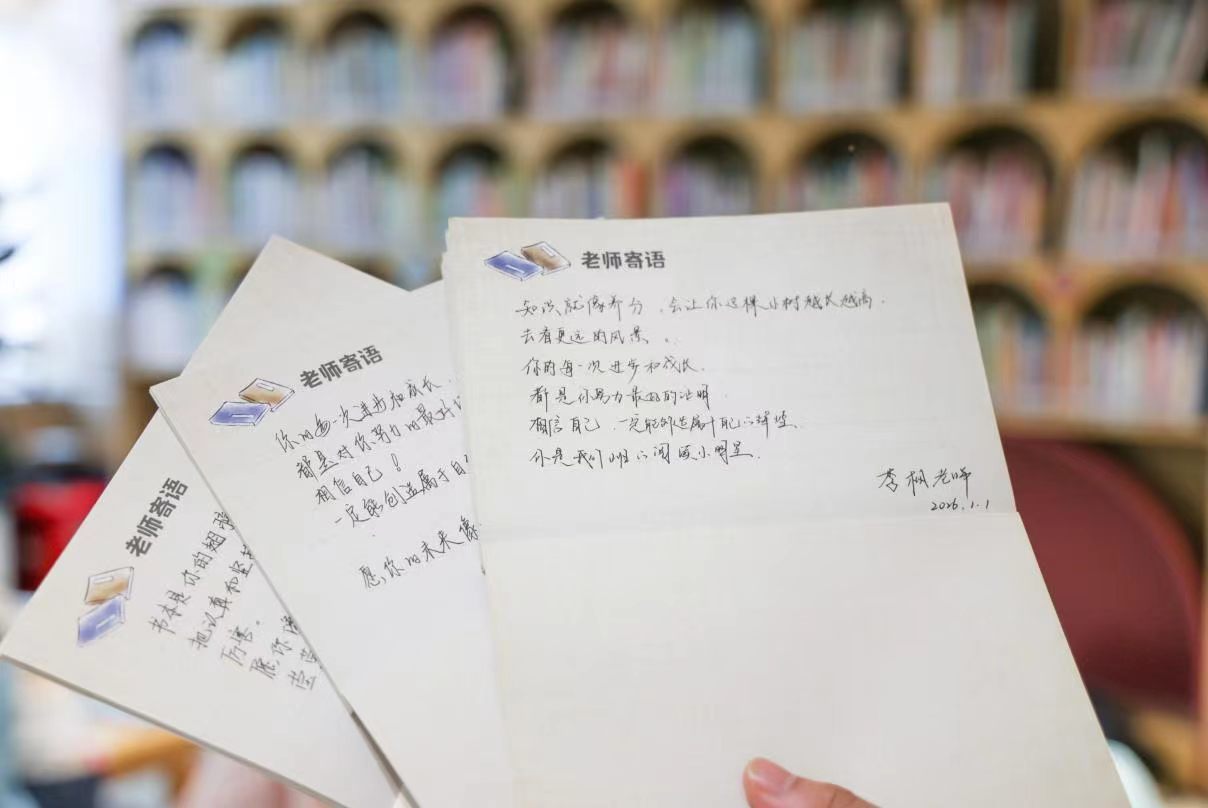 老师寄语
知识就像养分，会让你这棵小树越长越高，
去看更远的风景。
你的每一次进步和成长，
都是你努力最好的证明
相信自己，一定能创造属于自己的辉煌
你是我们班的阅读小明星
李枫老师
2026.1.1
老师寄语
你的每一次进步和成长，
都是对你努力的最好
相信自己！
一定能创造属于自
愿你的未来像
老师寄语
书本是你的翅
把认真和坚
厉害。
愿你